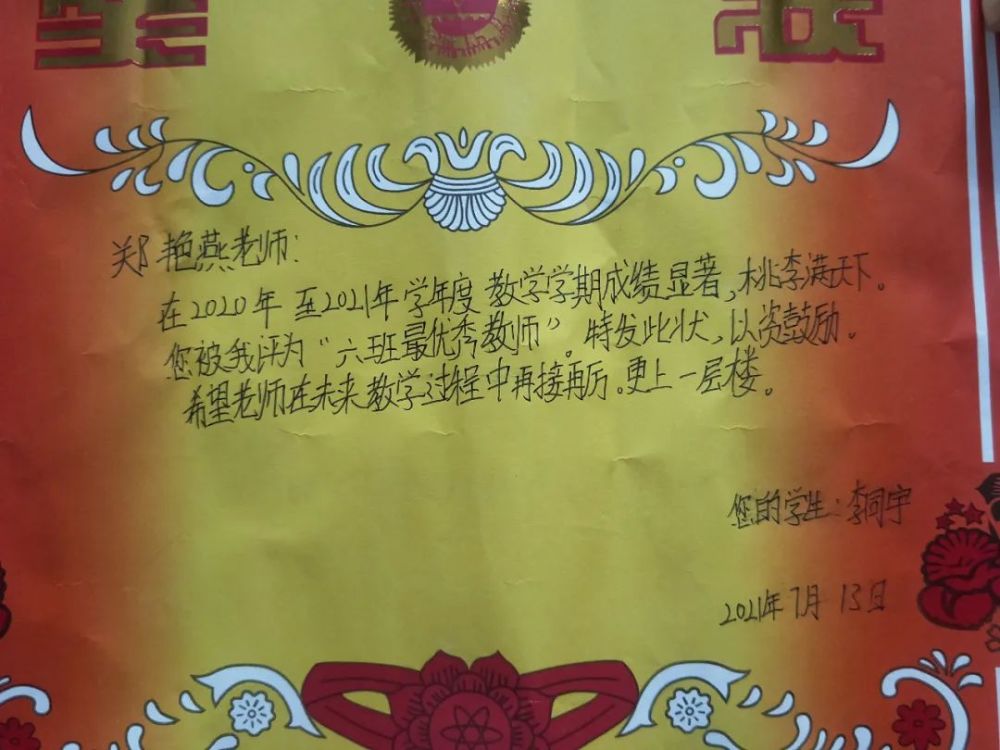 奖状
郑艳燕老师：
在2020年至2021年学年度教学学期成绩显著，桃李满天下。
您被我评为“六班最优秀教师”。特发此状，以资鼓励。
希望老师在未来教学过程中再接再厉。更上一层楼。
您的学生：李同宇
2021年7月13日